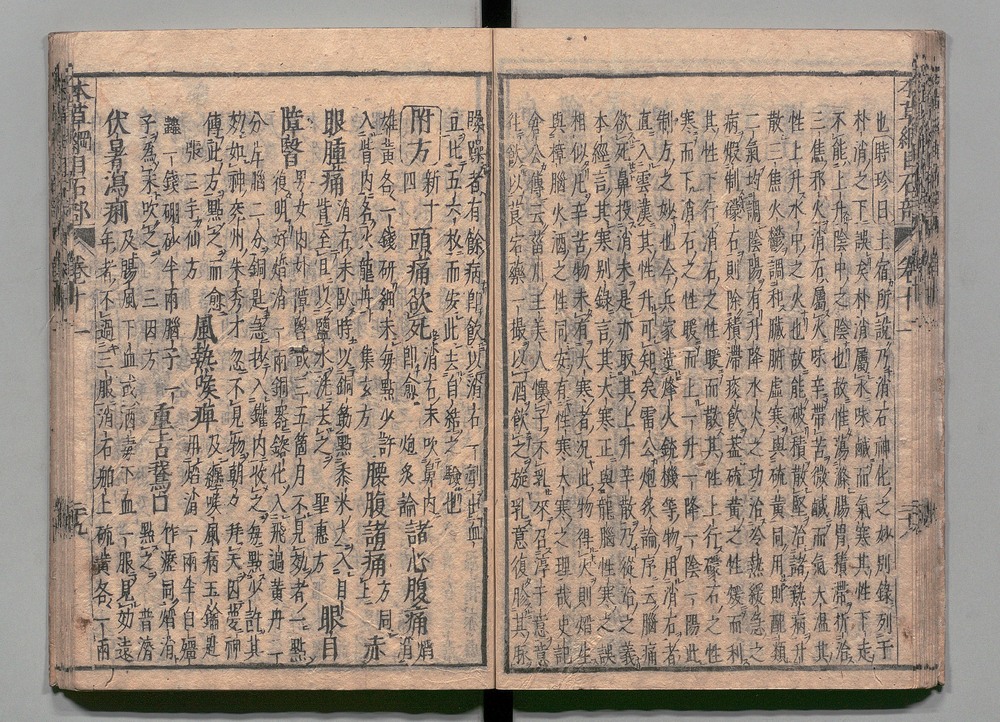 本草綱目石部 卷十一 三十九
也 時珍曰土宿所說乃消石神化之妙別錄列于
朴消之下誤矣朴消屬水味鹹而氣寒其性下走
不能上升陰中之陰也故惟蕩滌腸胃積滯折治
三焦邪火消石屬火味辛帶苦微鹹而氣大溫其
性上升水中之火也故能破積散堅治諸熱病升
散三焦火鬱調和臟腑虛寒與硫黃同用則配類
二氣均調陰陽有升降水火之功治冷熱緩急之
病煅制礞石則除積滯痰飲蓋硫黃之性暖而利
其性下行消石之性暖而散其性上行礞石之性
寒而下消石之性暖而上一升一降一陰一陽此
制方之妙也今兵家造烽火銃機等物用消石者
直入雲漢其性升可知矣雷公炮炙論序云腦痛
欲死鼻投消末是亦取其上升辛散乃從治之義
本經言其寒別錄言其大寒正與龍腦性寒之誤
相似凡辛苦物未有大寒者況此物得火則焰生
與樟腦火酒之性同安有性寒大寒之理哉史記
倉公傳云菑川王美人懷子不乳來召淳于意意
往飲以莨菪藥一撮以酒飲之旋乳意復胗其脈
躁躁者有餘病即飲以消石一劑出血
豆比五六枚而安此去自結之驗也
附方 新十四 頭痛欲死 消石末吹鼻內即愈 炮炙論 諸心腹痛 焰消
雄黃各一錢研細末每點少許入眥內名火龍丹 集玄方 腰腹諸痛 方同上 赤
眼腫痛 消石末臥時以銅筯點黍米大入目眥至旦以鹽水洗去之 聖惠方 眼目
障瞖 男女內外障瞖或三五箇月不見效者一點復明好焰消一兩銅器鎔化入飛過黃丹二
分片腦二分銅匙急抄入罐內收之每點少許其
效如神兖州朱秀才忽不見物朝夕拜天因夢神
傳此方點之而愈 張三丰仙方 風熱喉痺 及纏喉風病玉鑰匙用焰消一兩半白殭
蠶一錢硼砂半兩腦子一字為末吹之 三因方 重舌鵞口 竹瀝同焰消點之 普濟
伏暑瀉痢 及腸風下血或酒毒下血一服見効遠年者不過三服消石舶上硫黃各一兩
本草綱目石部 卷十一